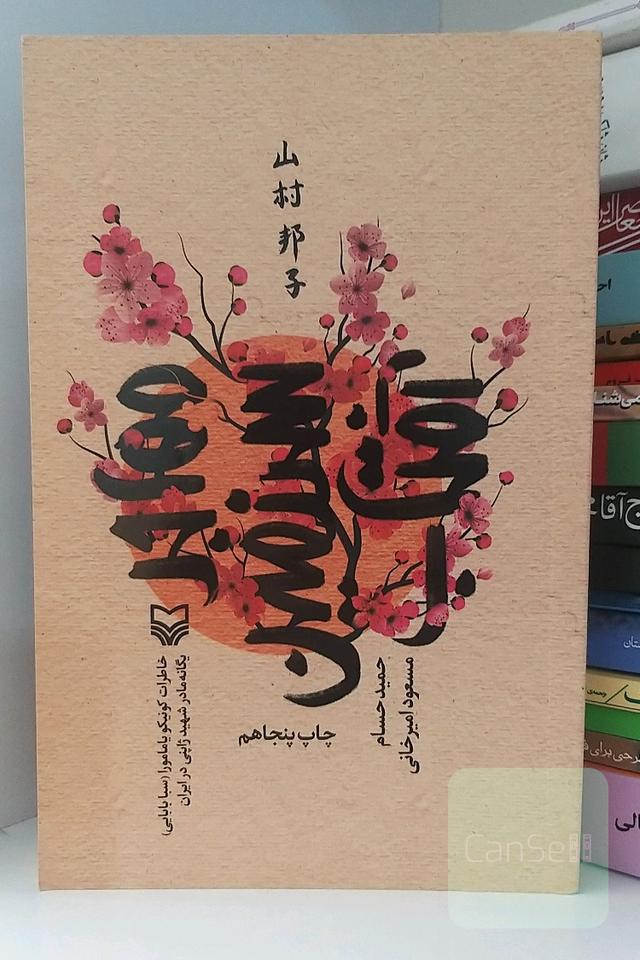 山村邦子
مهاجر
سرزمین
آفتاب
خاطرات کونیکو یامامورا (سبا بابایی)
یگانه مادر شهید ژاپنی در ایران
حمید حسام
مسعود امیرخانی
چاپ پنجاهم
CanSell